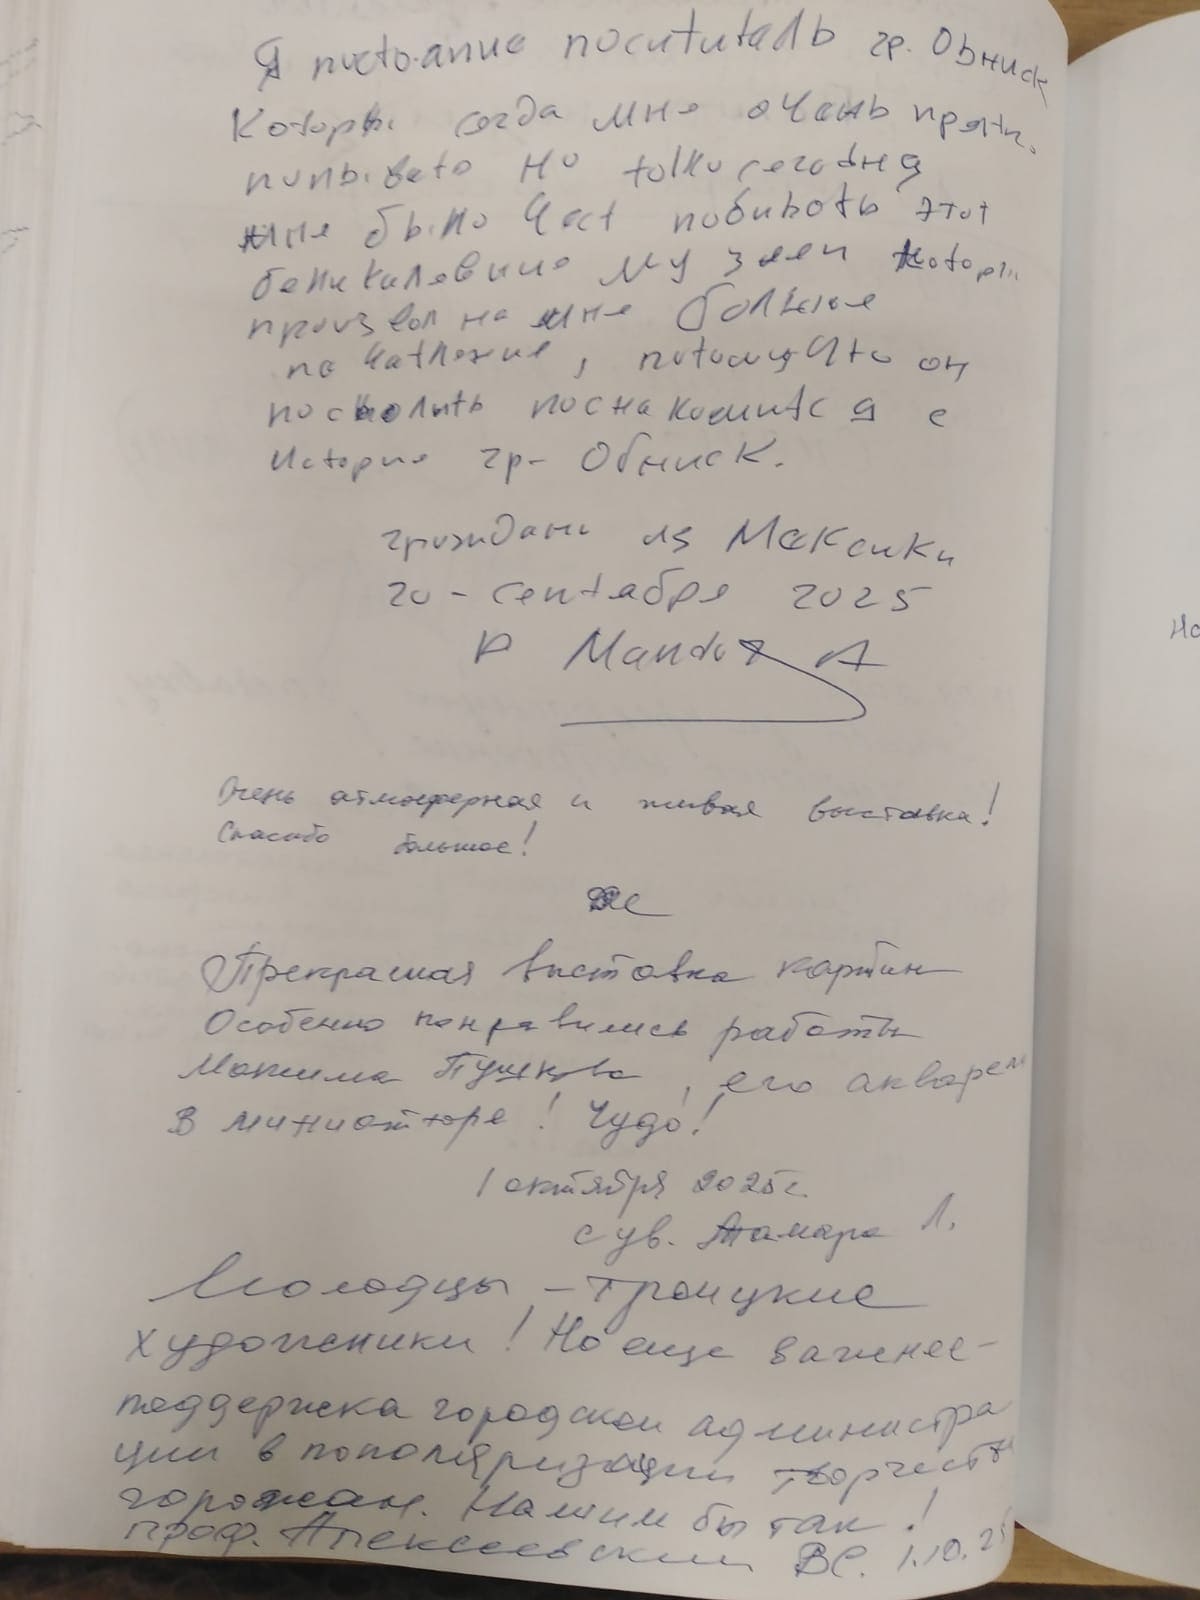 Я постояние поситительь гр. Обниск
Которы сегда мне очень прятн.
попывато но толко сегодня
мне было чест побивоть этот
беликалевние музеи которы
произвол на мне больние
по чатление, потому что он
посволить посна комитсся с
История гр- Обниск.
граждани из Мексики
20 - сентября 2025
P Mandoz A
Очень атмосферная и живая выставка!
Спасибо большое!
Прекрасная выставка картин
Особенно понравились работы
Максима Пушкова, его акварели
в миниатюре! Чудо!
1 октября 2025г.
с ув. Тамара Л.
Молодцы - троицкие
художники! Но еще важнее -
поддержка городской администра
ции в популяризации творчества
горожан. Нашим бы так!
проф. Алексеевский ВС. 1.10.25
Но